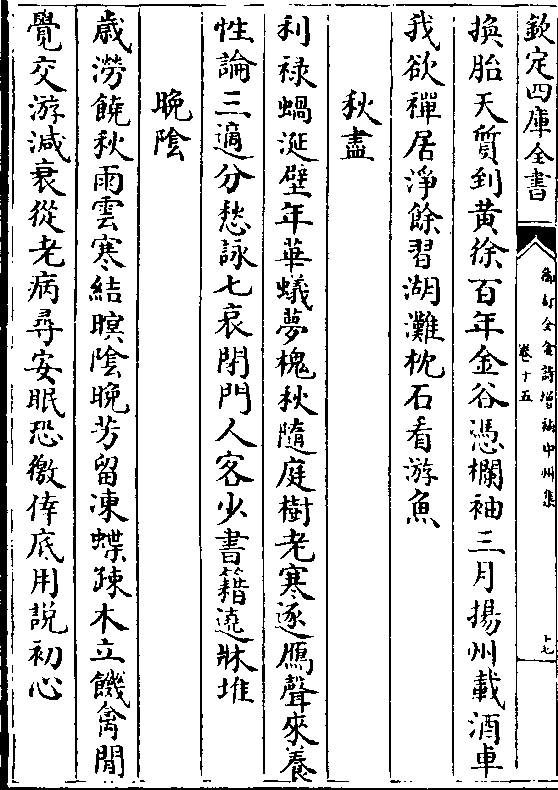 欽定四庫全書
御訂全金詩增補中州集
卷十五
十七
換胎天質到黃徐百年金谷憑欄袖三月揚州載酒車
我欲禪居淨餘習湖灘枕石看游魚
秋盡
利祿蝸涎壁年華蟻夢槐秋隨庭樹老寒逐鴈聲來養
性論三適分愁詠七哀閉門人客少書籍遶牀堆
晚陰
歲澇饒秋雨雲寒結暝陰晚芳留凍蝶疎木立饑禽閒
覺交游減衰從老病尋安眠恐徼倖底用說初心